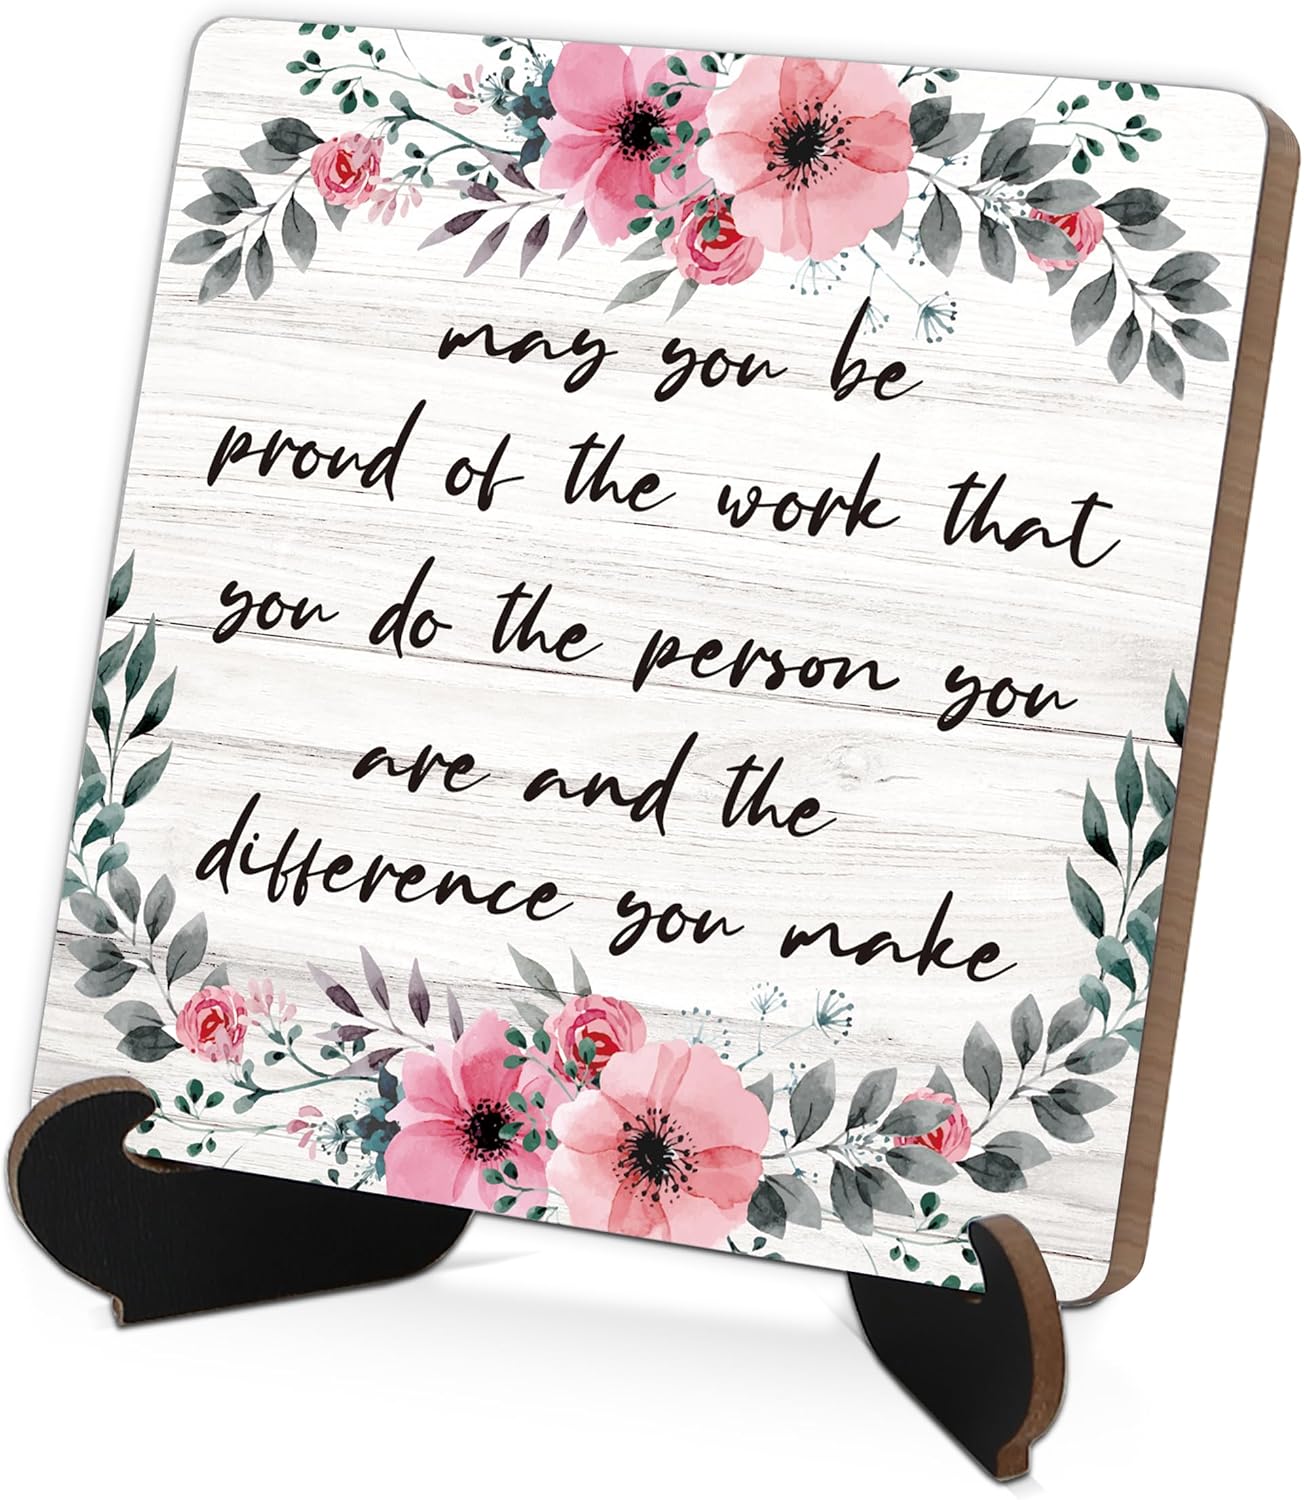 may you be
proud of the work that
you do the person you
are and the
difference you make